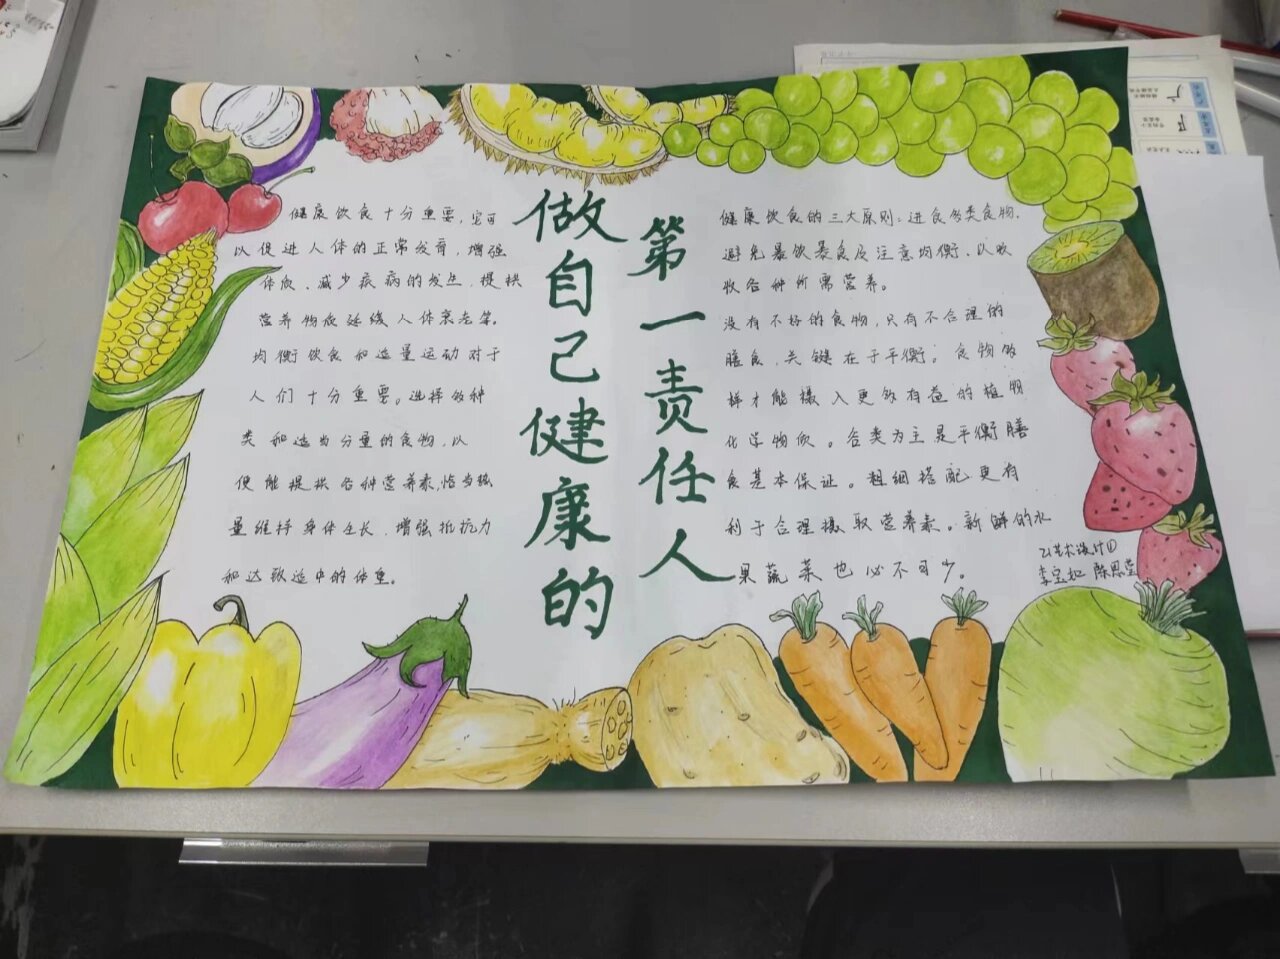 健康饮食十分重要,它可
以促进人体的正常发育,增强
体质、减少疾病的发生,提供
营养物质延缓人体衰老等。
均衡饮食和适量运动对于
人们十分重要。选择多种
类和适当分量的食物,以
便能提供各种营养素,恰当强
量维持身体生长,增强抵抗力
和达致适中的体重。
做自己健康的
第一责任人
健康饮食的三大原则:进食多类食物.
避免暴饮暴食及注意均衡、以吸
收各种所需营养。
没有不好的食物,只有不合理的
膳食,关键在于平衡。食物多
样才能摄入更多有益的植物
化学物质。谷类为主是平衡膳
食基本保证。粗细搭配更有
利于合理摄取营养素。新鲜的水
果蔬菜也必不可少。
21艺术设计①